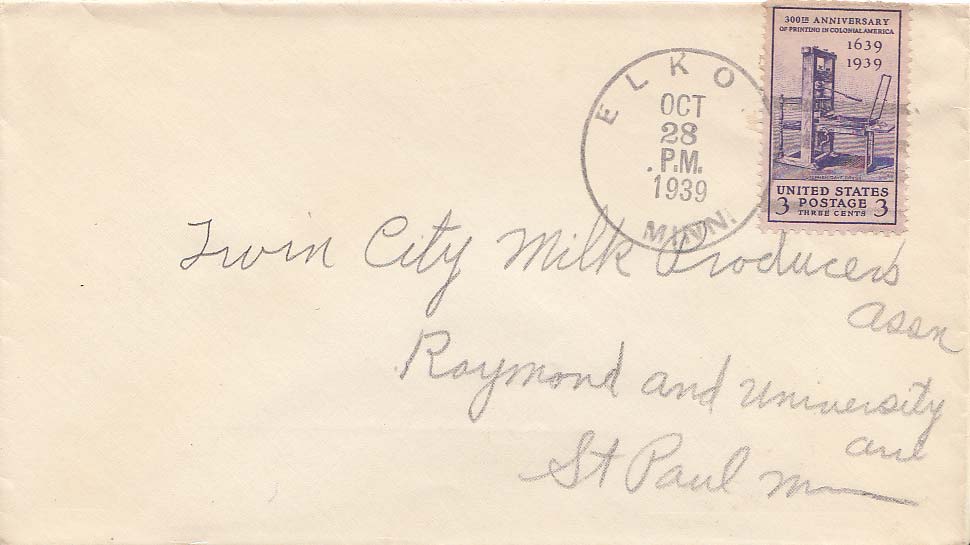 300TH ANNIVERSARY
OF PRINTING IN COLONIAL AMERICA
1639
1939
UNITED STATES
3 POSTAGE 3
THREE CENTS
ELKO
OCT
28
P.M.
1939
MINN.
Twin City Milk Producers
Assn
Raymond and University
ave
St Paul M